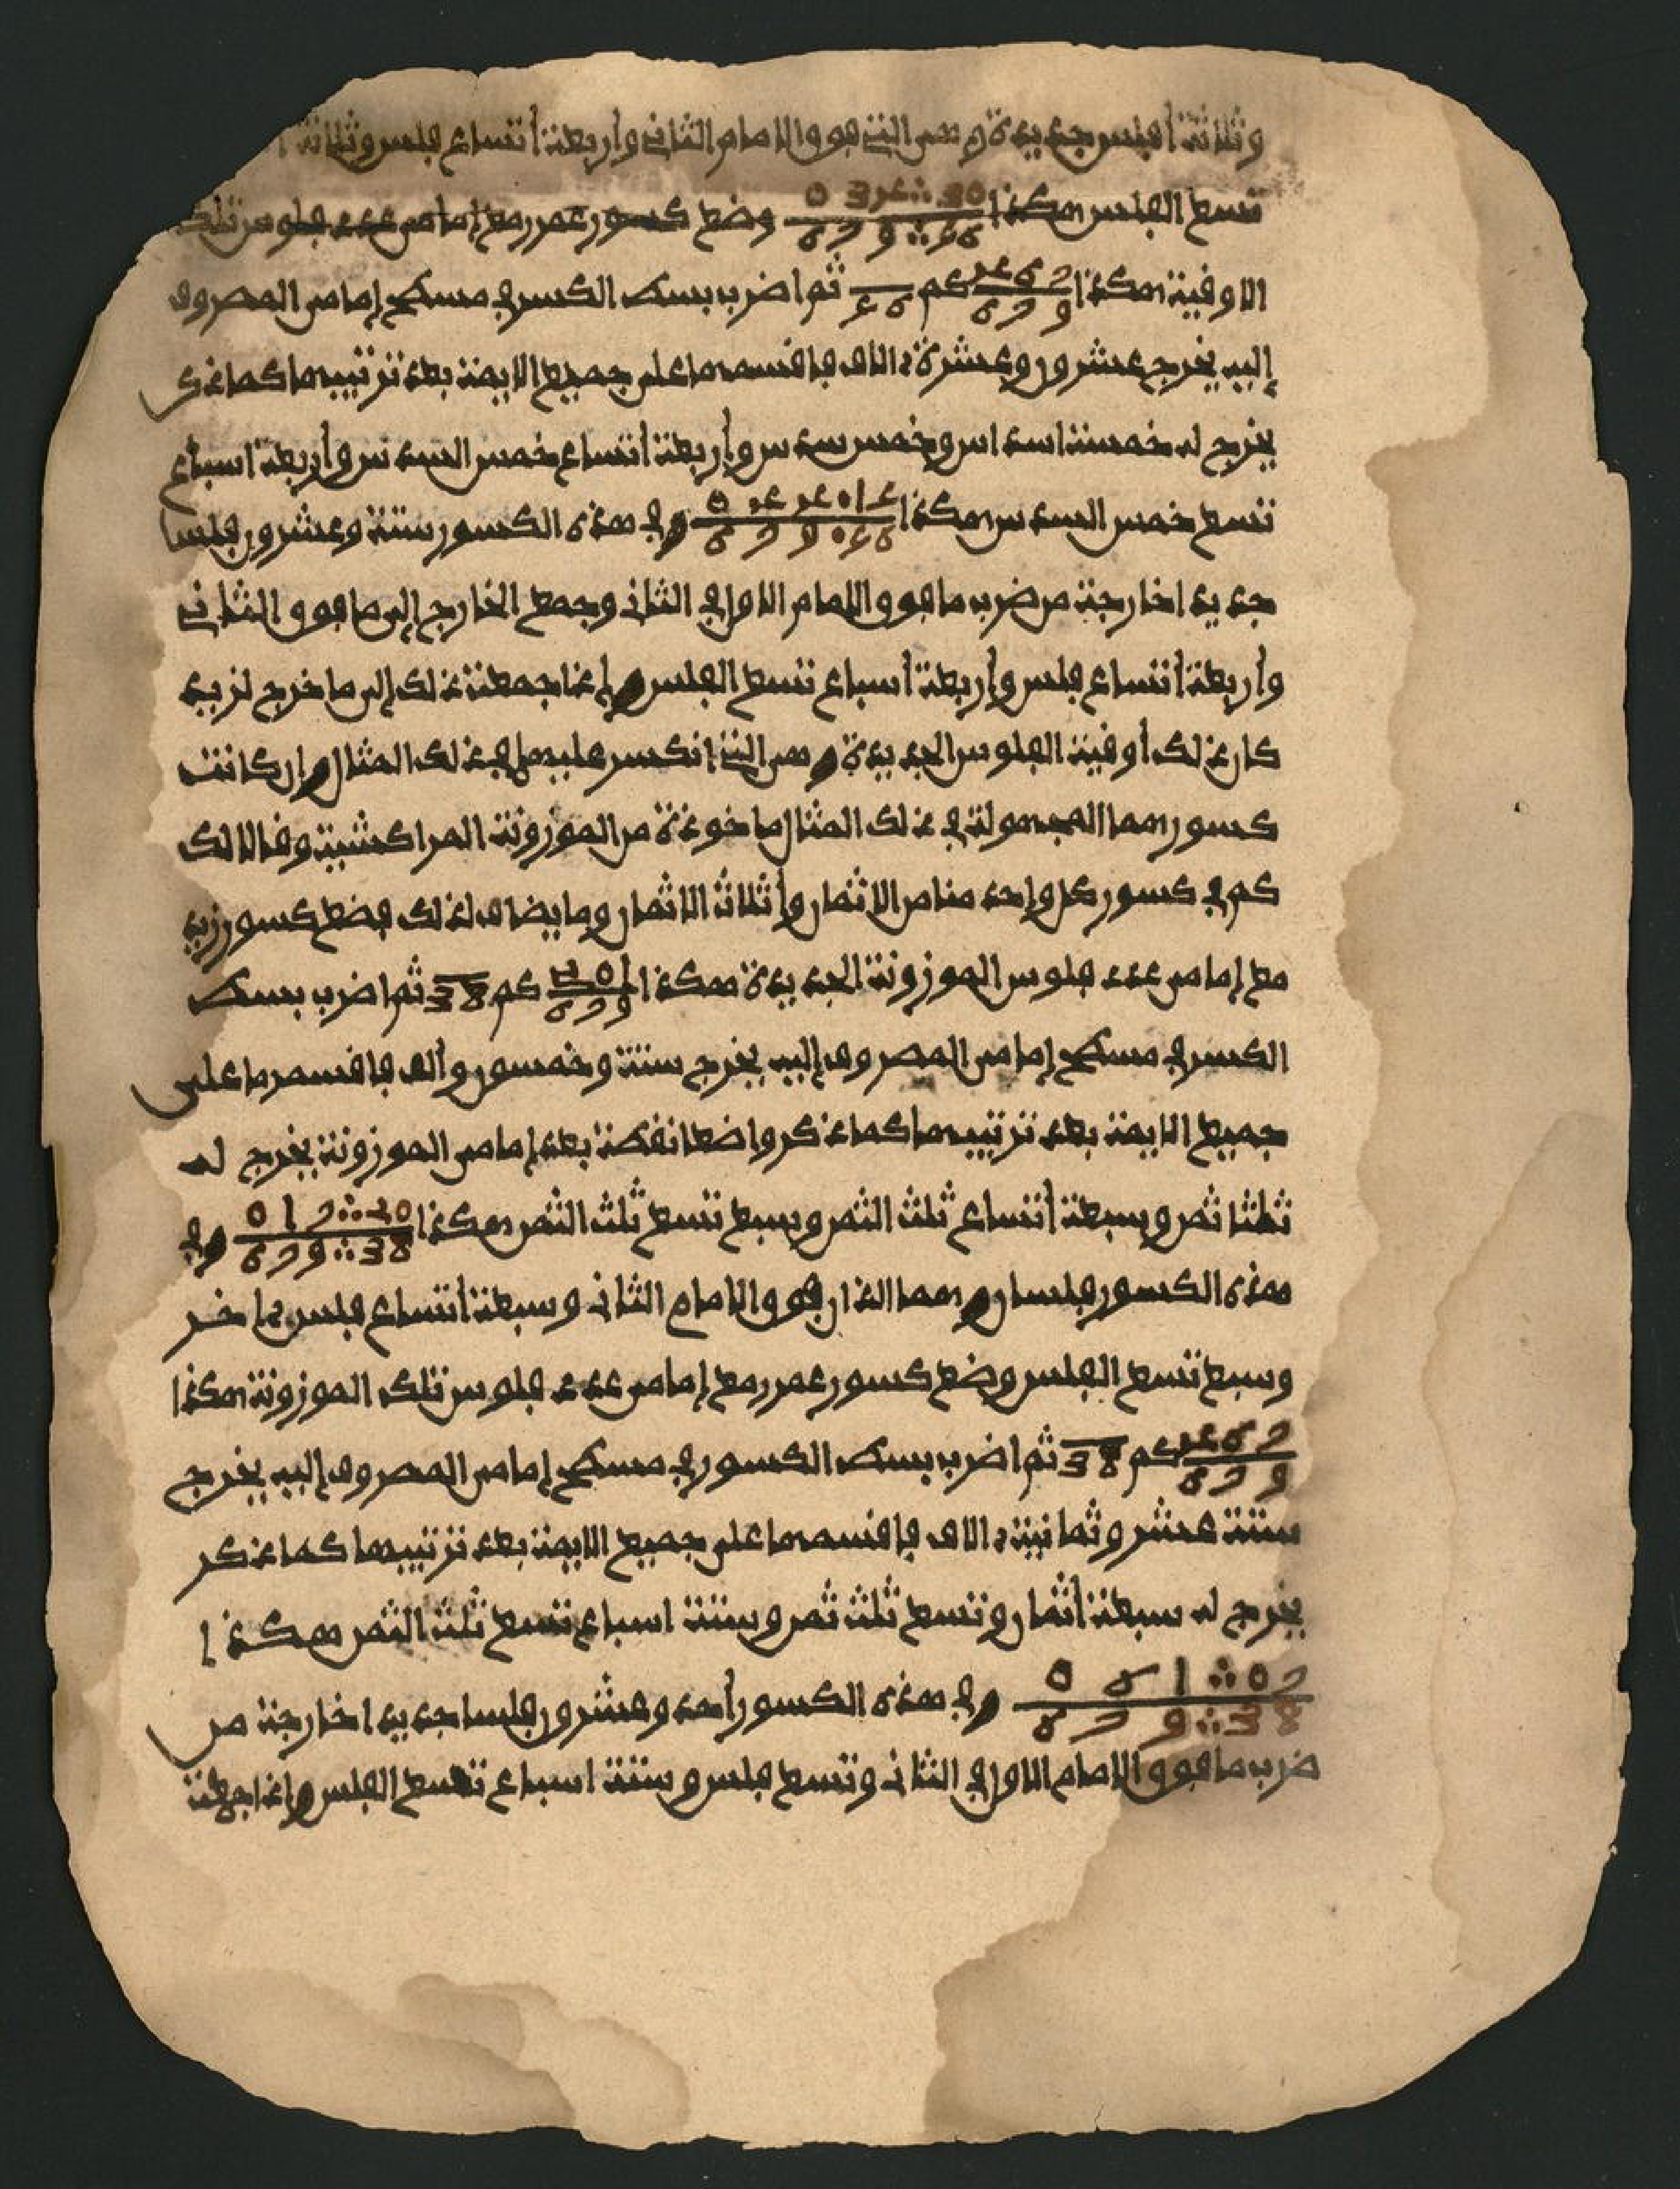 وثلاثة أفلس جديدة وهي التي فوق الامام الثاني وأربعة أتساع فلس وثلاثة أ
تسع الفلس هكذا وضع كسور عمر مع إمامي عدد فلوس تلك
الاوقية هكذا كم ثم اضرب بسط الكسر في مسطح إمامي المصروف
إليه يخرج عشرون وعشرة ءالاف فاقسمها على جميع الايمة بعد ترتيبها كما ذكر
يخرج له خمسة اسداس وخمس سدس وأربعة أتساع خمس السدس وأربعة اسباع
تسع خمس السدس هكذا وفي هذه الكسور ستة وعشرون فلسا
جديدا خارجة من ضرب ما فوق الامام الاول في الثاني وجمع الخارج إلى ما فوق الثاني
وأربعة أتساع فلس وأربعة أسباع تسع الفلس وإذا جمعت ذلك إلى ما خرج لزيد
كان ذلك أوقية الفلوس الجديدة وهي التي انكسر عليها في ذلك المثال وإن كانت
كسورهما المجهولة في ذلك المثال ماخوذة من الموزونة المراكشية وقال لك
كم في كسور كل واحد منا من الاثمان وأثلاث الاثمان وما يضاف لذلك فضع كسور زيد
مع إمامي عدد فلوس الموزونة الجديدة هكذا كم 38 ثم اضرب بسط
الكسر في مسطح إمامي المصروف إليه يخرج ستة وخمسون وألف فاقسمها على
جميع الايمة بعد ترتيبها كما ذكر واضعا نقطة بعد إمامي الموزونة يخرج له
ثلثا ثمن وسبعة أتساع ثلث الثمن وسبع تسع ثلث الثمن هكذا وفي
هذه الكسور فلسان وهما اللذان فوق الامام الثاني وسبعة أتساع فلس ءاخر
وسبع تسع الفلس وضع كسور عمر مع إمامي عدد فلوس تلك الموزونة هكذا
كم 38 ثم اضرب بسط الكسور في مسطح إمامي المصروف إليه يخرج
ستة عشر وثمانية ءالاف فاقسمها على جميع الايمة بعد ترتيبها كما ذكر
يخرج له سبعة أثمان وتسع ثلث ثمن وستة اسباع تسع ثلث الثمن هكذا
وفي هذه الكسور أحد وعشرون فلسا جديدا خارجة من
ضرب ما فوق الامام الاول في الثاني وتسع فلس وستة اسباع تسع الفلس وإذا جمعت